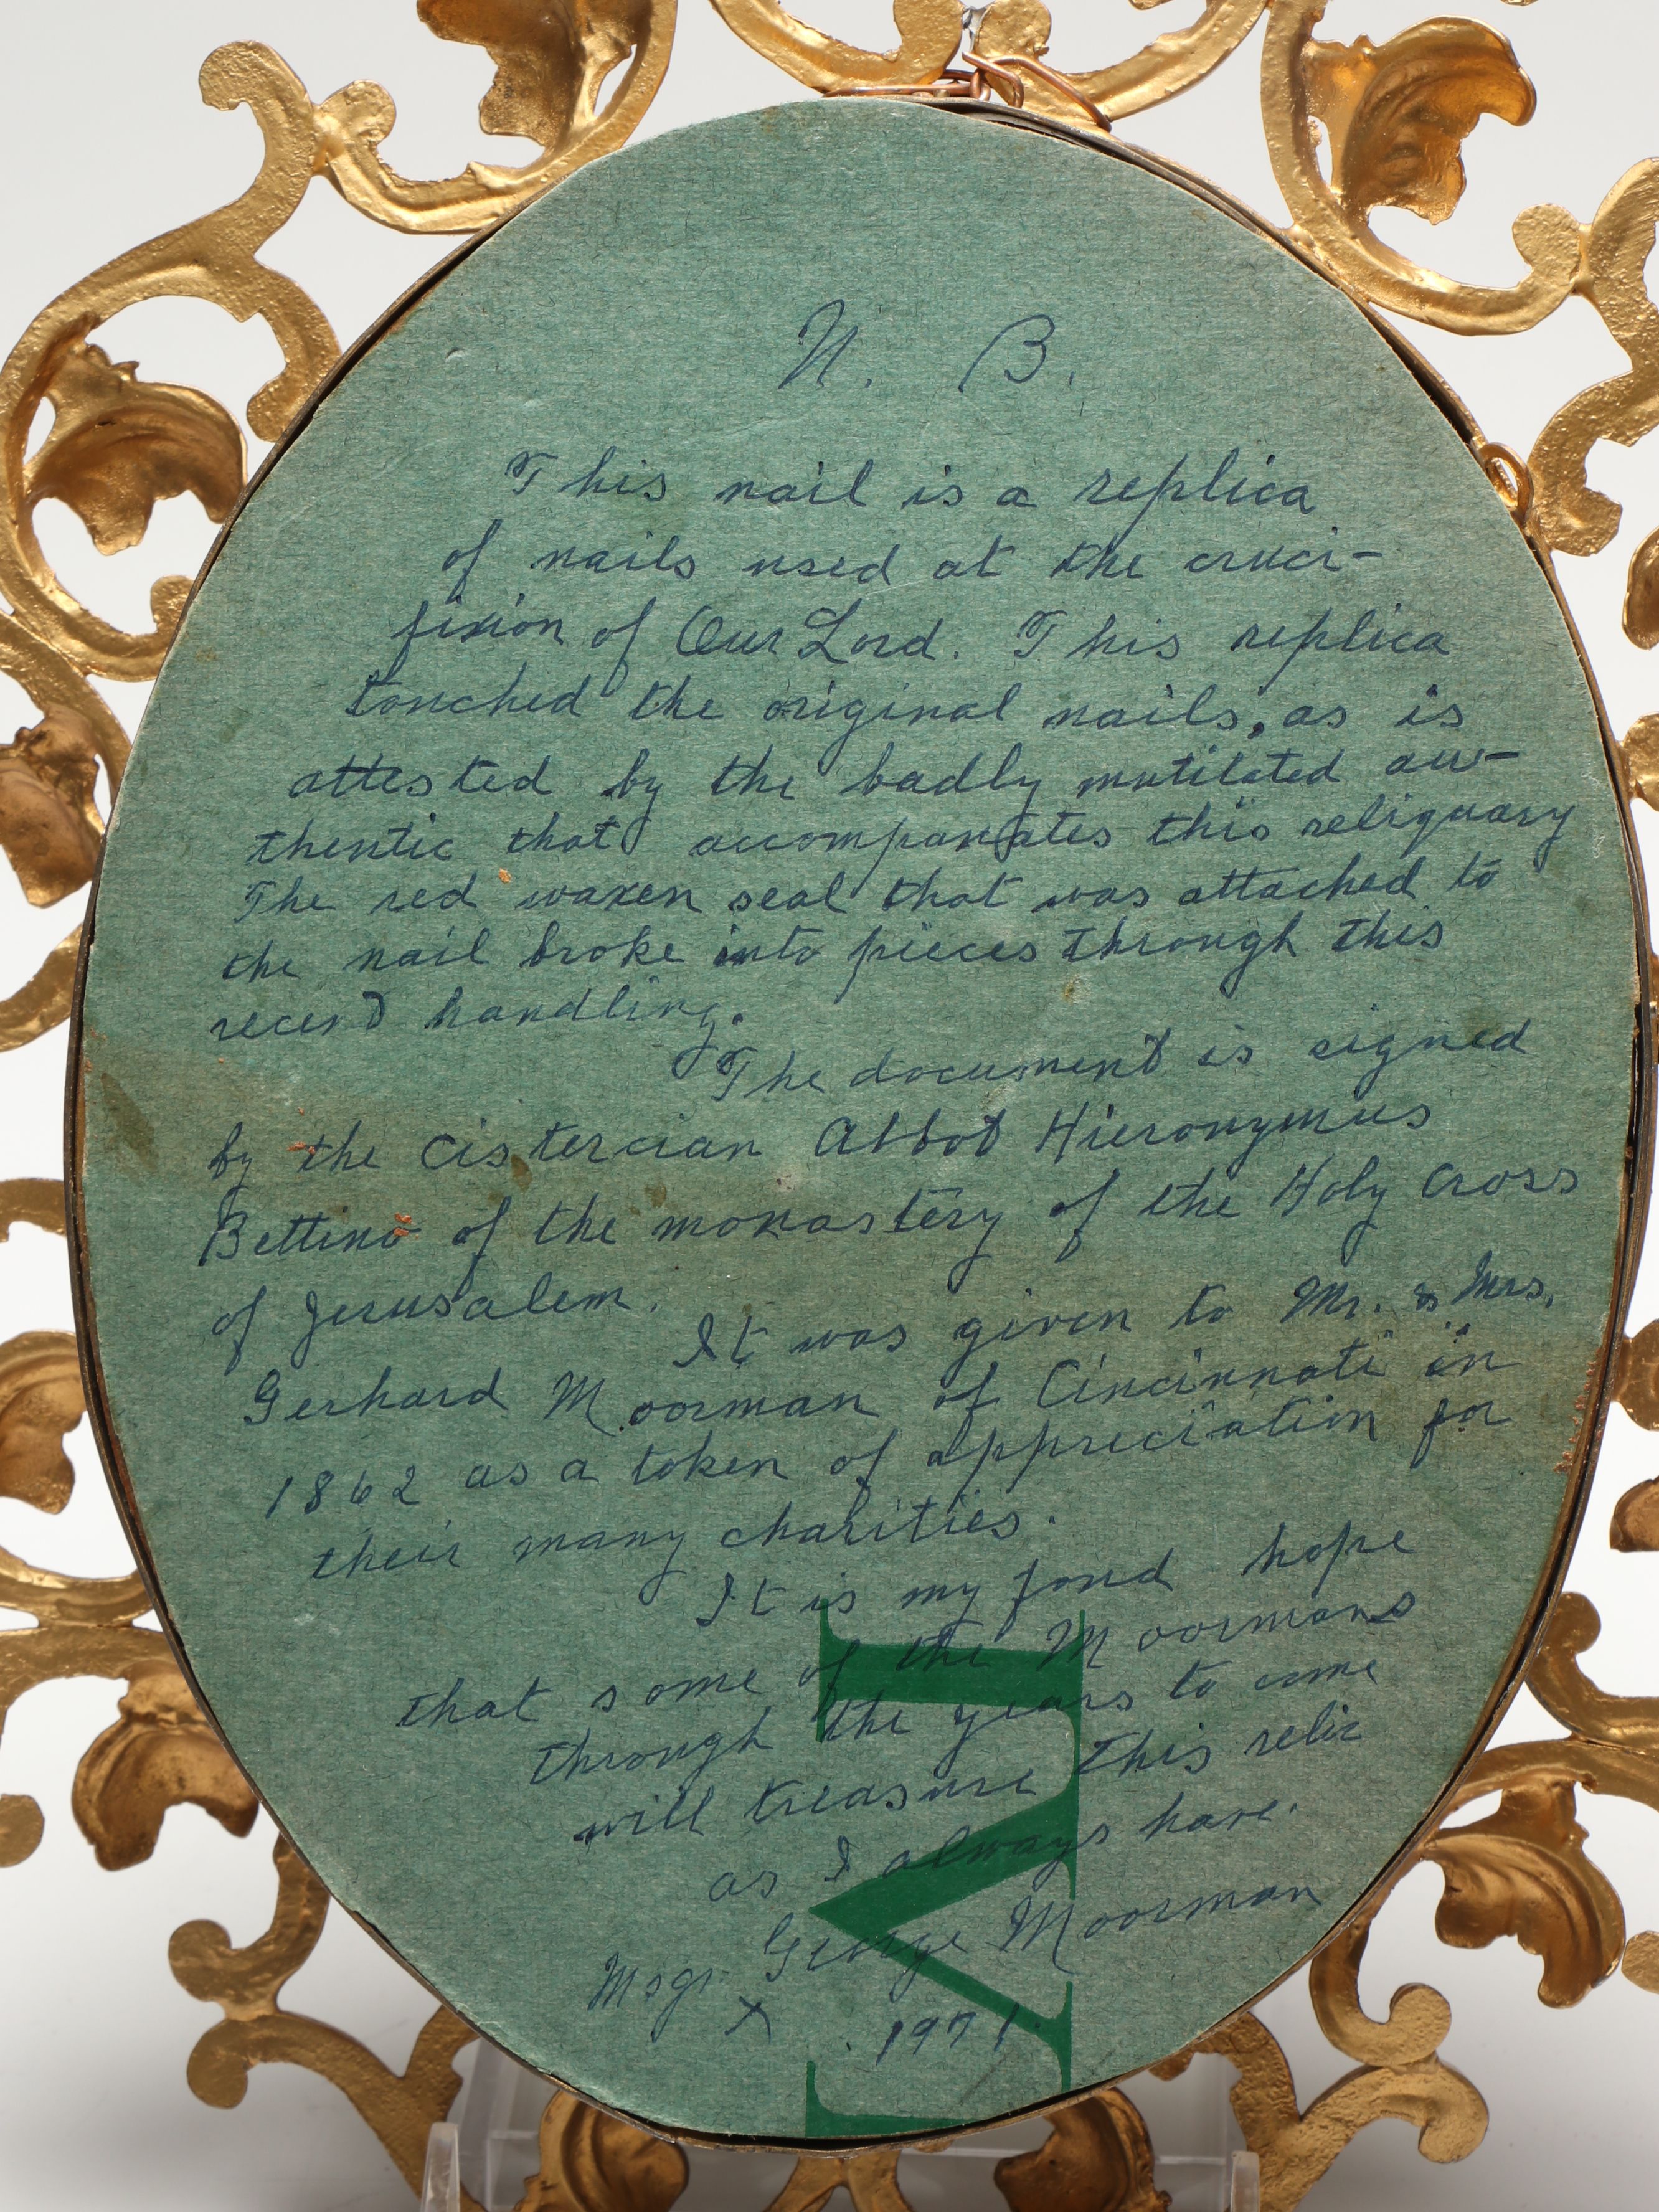 N. B.
This nail is a replica
of nails used at the cruci-
fixion of Our Lord. This replica
touched the original nails, as is
attested by the badly mutilated au-
thentic that accompanates this reliquary
The red waxen seal that was attached to
the nail broke into pieces through this
recent handling.
The document is signed
by the Cistercian Abbot Hieronymus
Bettino of the monastery of the Holy Cross
of Jerusalem.
It was given to Mr. & Mrs.
Gerhard Moorman of Cincinnati in
1862 as a token of appreciation for
their many charities.
It is my fond hope
that some of the Moormans
through the years to come
will treasure this relic
as I always have.
Msgr. George Moorman
1971.